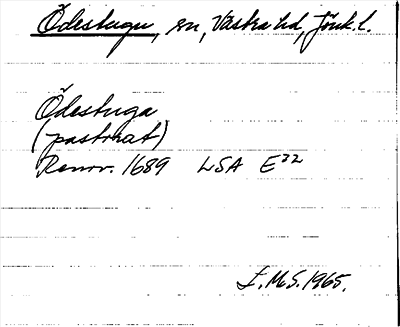 Ödestugu, sn, Västra hd, Jönk. l.
Ödestuga
(pastorat)
Renov. 1689 LSA E22
L.M.S. 1965.